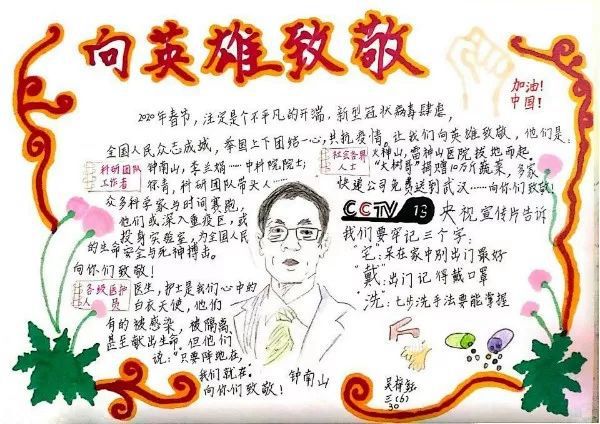 向英雄致敬
加油!
中国!
2020年春节,注定是个不平凡的开端,新型冠状病毒肆虐,
全国人民众志成城,举国上下团结一心,共抗疫情。让我们向英雄致敬,他们是:
科研团队
工作者
钟南山,李兰娟……中科院院士,
怀着,科研团队带夫人……
众多科学家与时间赛跑,
他们或深入重疫区,或
投身实验室,为全国人民
的生命安全与死神搏击。
向你们致敬!
各级医护
人员
医生,护士是我们心中的
白衣天使,他们
有的被感染,被隔离,
甚至献出生命。但他们
说:"只要阵地在,
我们就在。"
向你们致敬!
社会各界
人士
火神山,雷神山医院拔地而起。
"大树哥"捐赠10万斤蔬菜,多家
快递公司免费送到武汉……向你们致敬!
CCTV 13 央视宣传片告诉
我们要牢记三个字:
"宅":呆在家中别出门最好
"戴":出门记得戴口罩
"洗":七步洗手法要能掌握
钟南山
三(6)
30